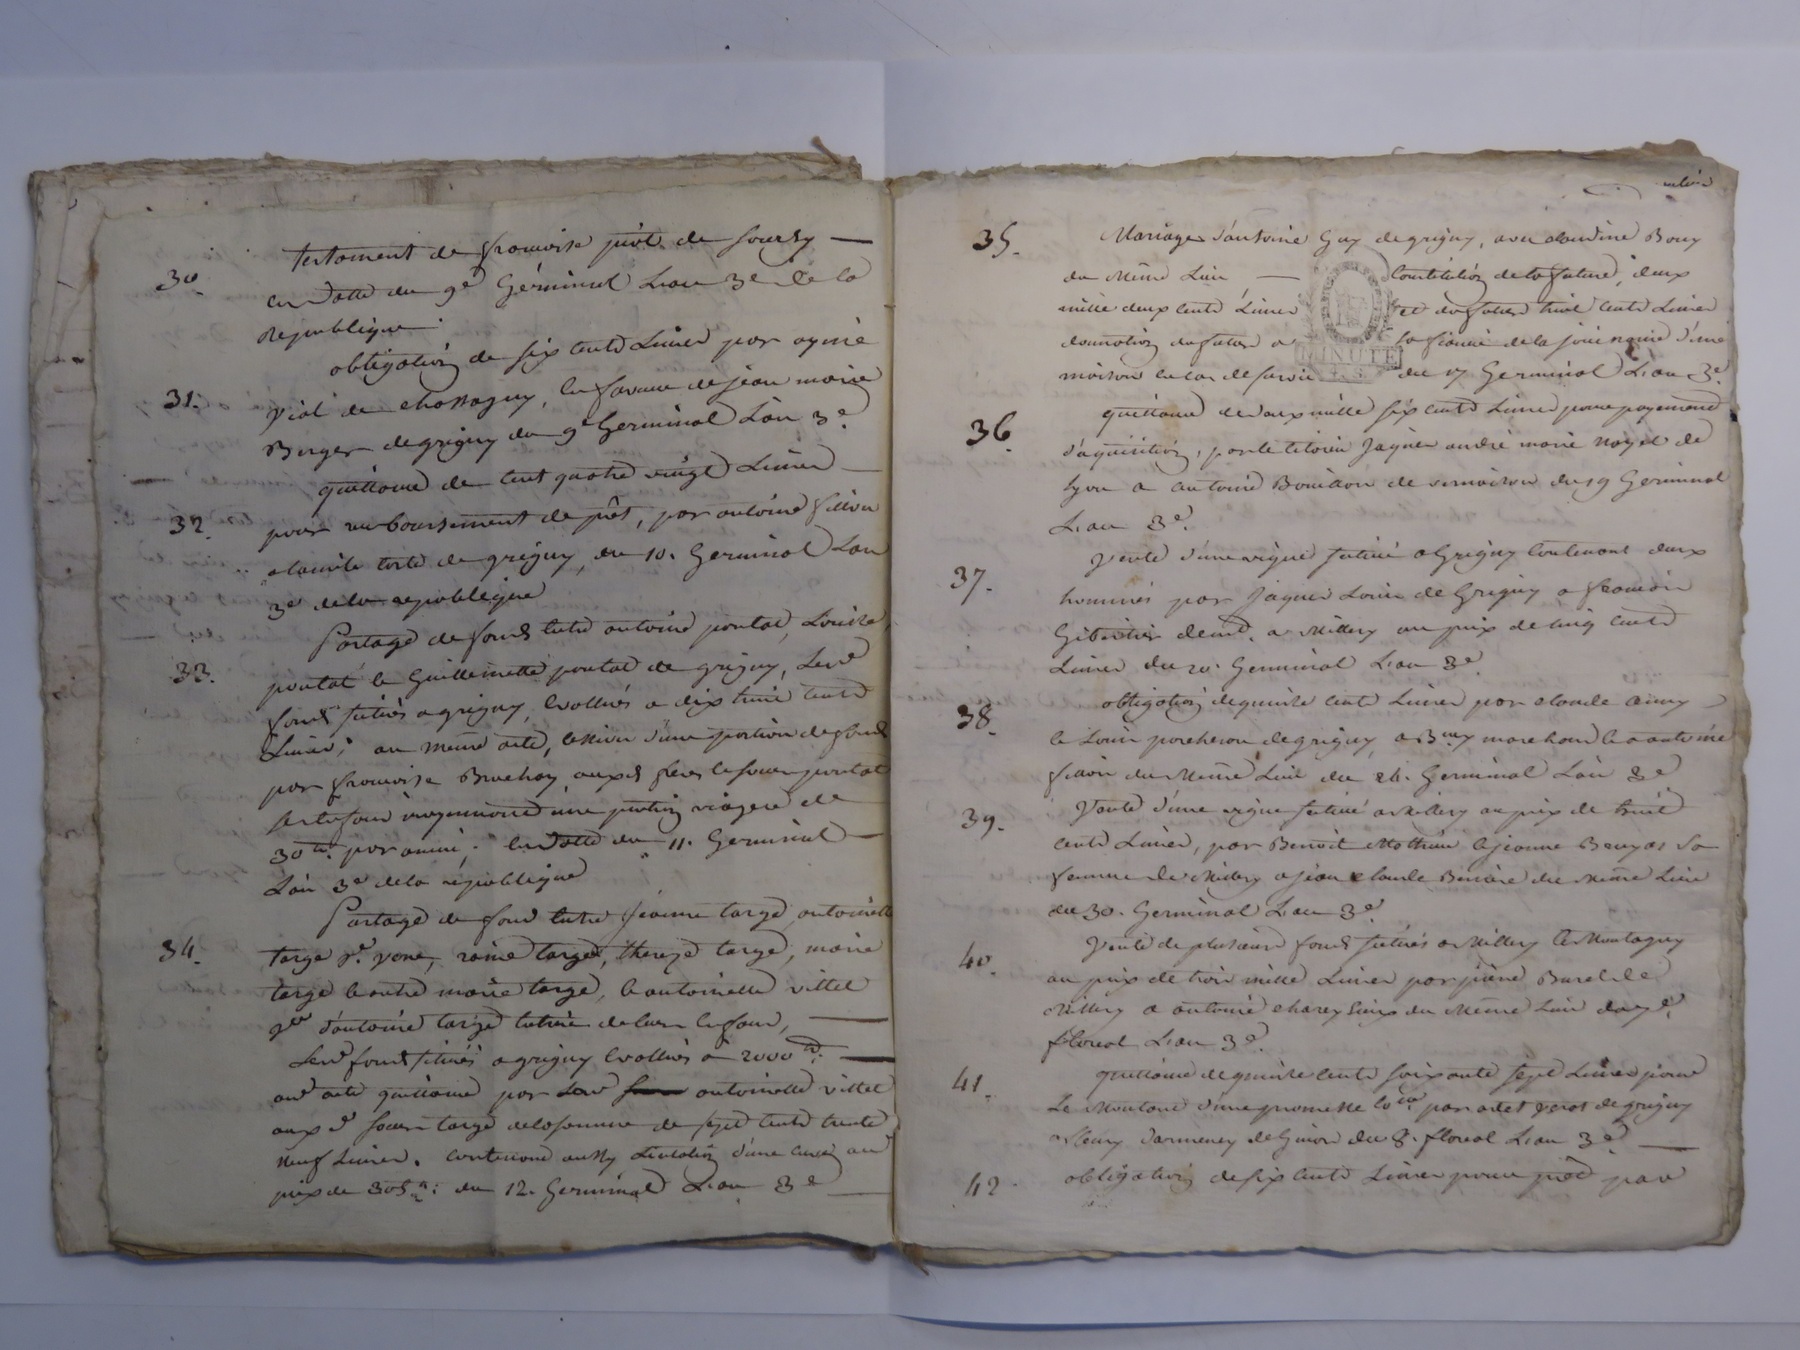 30. testament de françoise piot de sourzy —
en datte du 9e Germinal L'an 3e de la
Republique.
obligation de six cents Livres par aymé
31. piot de chassagny, en faveur de jean marie
Berger de grigny du 9e Germinal L'an 3e.
quittance de cent quatre vingt Livres —
32. pour remboursement de prêt, par antoine fillion
a camile torte de grigny, du 10. Germinal L'an
3e de la republique
Partage de fonds entre antoine pontal, Louise
33. pontal et Guillemette pontal de grigny, Lesd
fonds situés a grigny, Evallués a dix huit cents
Livres; au même acte, cession d'une portion de fonds
par françoise Bruchay auxd freres et soeur pontal
ses enfans moyennant une pention viagere de
30 tt. par année; en datte du 11. Germinal —
L'an 3e de la republique
Partage de fond entre Jeanne targe, antoinette
34. targe, marie targe, thereze targe, marie
targe et autre marie targe, et antoinette vittet
ve d'antoine targe tutrice de leurs enfans, —
Lesd fonds situés a grigny Evallués a 2000 tt. —
aud acte quittance par Lad antoinette vittet
auxd soeurs targe de la somme de sept cents trente
neuf Livres. contenant aussy Licitation d'une cuve au
prix de 305 tt: du 12. Germinal L'an 3e —
35. Mariage d'antoine Guy de grigny, avec claudine Bouy
du Même Lieu — Constitution de la future, deux
mille deux cents Livres et du futur huit cents Livres
donnation du futur a sa fiancée de la jouissance d'une
maison en cas de survie du 17 Germinal L'an 3e.
MINUTE
quittance de deux mille six cents Livres pour payement
36. d'aquisition, par le citoien Jaques andré marie noyel de
Lyon a antoine Bouillon de vernaison du 19 Germinal
L'an 3e.
Vente d'une vigne située a Grigny Contenant deux
37. hommés par Jaques Louis de Grigny a françois
demt. a Millery au prix de cinq cents
Livres du 20. Germinal L'an 3e
obligation de quinze cents Livres par claude
38. et Louis porcheron de grigny, a marchand et a antoine
du Même Lieu du 26. Germinal L'an 3e
39. Vente d'une vigne située a Millery au prix de huit
cents Livres, par Benoit Mathieu et jeanne sa
femme de Millery a jean claude du Même Lieu
du 30. Germinal L'an 3e.
Vente de plusieurs fonds situés a Millery et Montagny
40. au prix de trois mille Livres par pierre Burel de
Millery a antoine du Même Lieu du
floreal L'an 3e.
quittance de quinze cents soixante sept Livres pour
41. Le Montant d'une promesse par de grigny
a fleury de Givors du 8. floreal L'an 3e —
42. obligation de six cents Livres pour prêt par